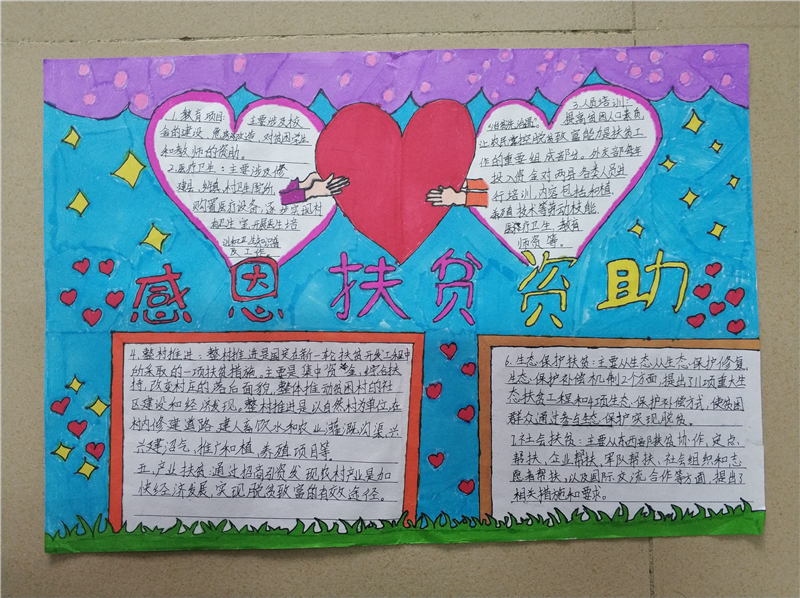 1.教育项目：主要涉及校
舍的建设 对贫困学生
和教师的资助。
2.医疗卫生：主要涉及修
建县、乡镇、村卫生院所，
购置医疗设备，逐步实现村
有卫生室，开展医生培
训和卫生知识普
及工作。
3.人员培训：
提高贫困人口素质，
让农民掌控脱贫致富能力是扶贫工
作的重要组成部分。外交部每年
投入资金对两县各类人员进
行培训，内容包括种植
养殖技术等劳动技能，
医疗卫生、教育
师资等。
感恩扶贫资助
4.整村推进：整村推进是国定在新一轮扶贫开发工程中
所采取的一项扶贫措施。主要是集中资金，综合扶
持，改变村庄的落后面貌，整体推动贫困村的社
区建设和经济发现。整村推进是以自然村为单位，在
村内修建道路，建人畜饮水和农业灌溉沟渠，兴
兴建沼气，推广和植，养殖项目等
五，产业扶贫：通过招商引资发现农村产业是加
快经济发展，实现脱贫致富的有效途径。
6.生态保护扶贫：主要从生态从生态保护修复，
生态保护补偿机制2个方面，提出了11项重大生
态扶贫工程和4项生态保护补偿方式，使贫困
群众通过参与生态保护实现脱贫。
7.社会扶贫：主要从东西部扶贫协作，定点
帮扶，企业帮扶，军队帮扶、社会组织和志
愿者帮扶，以及国际交流合作等方面，提出了
相关措施和要求。